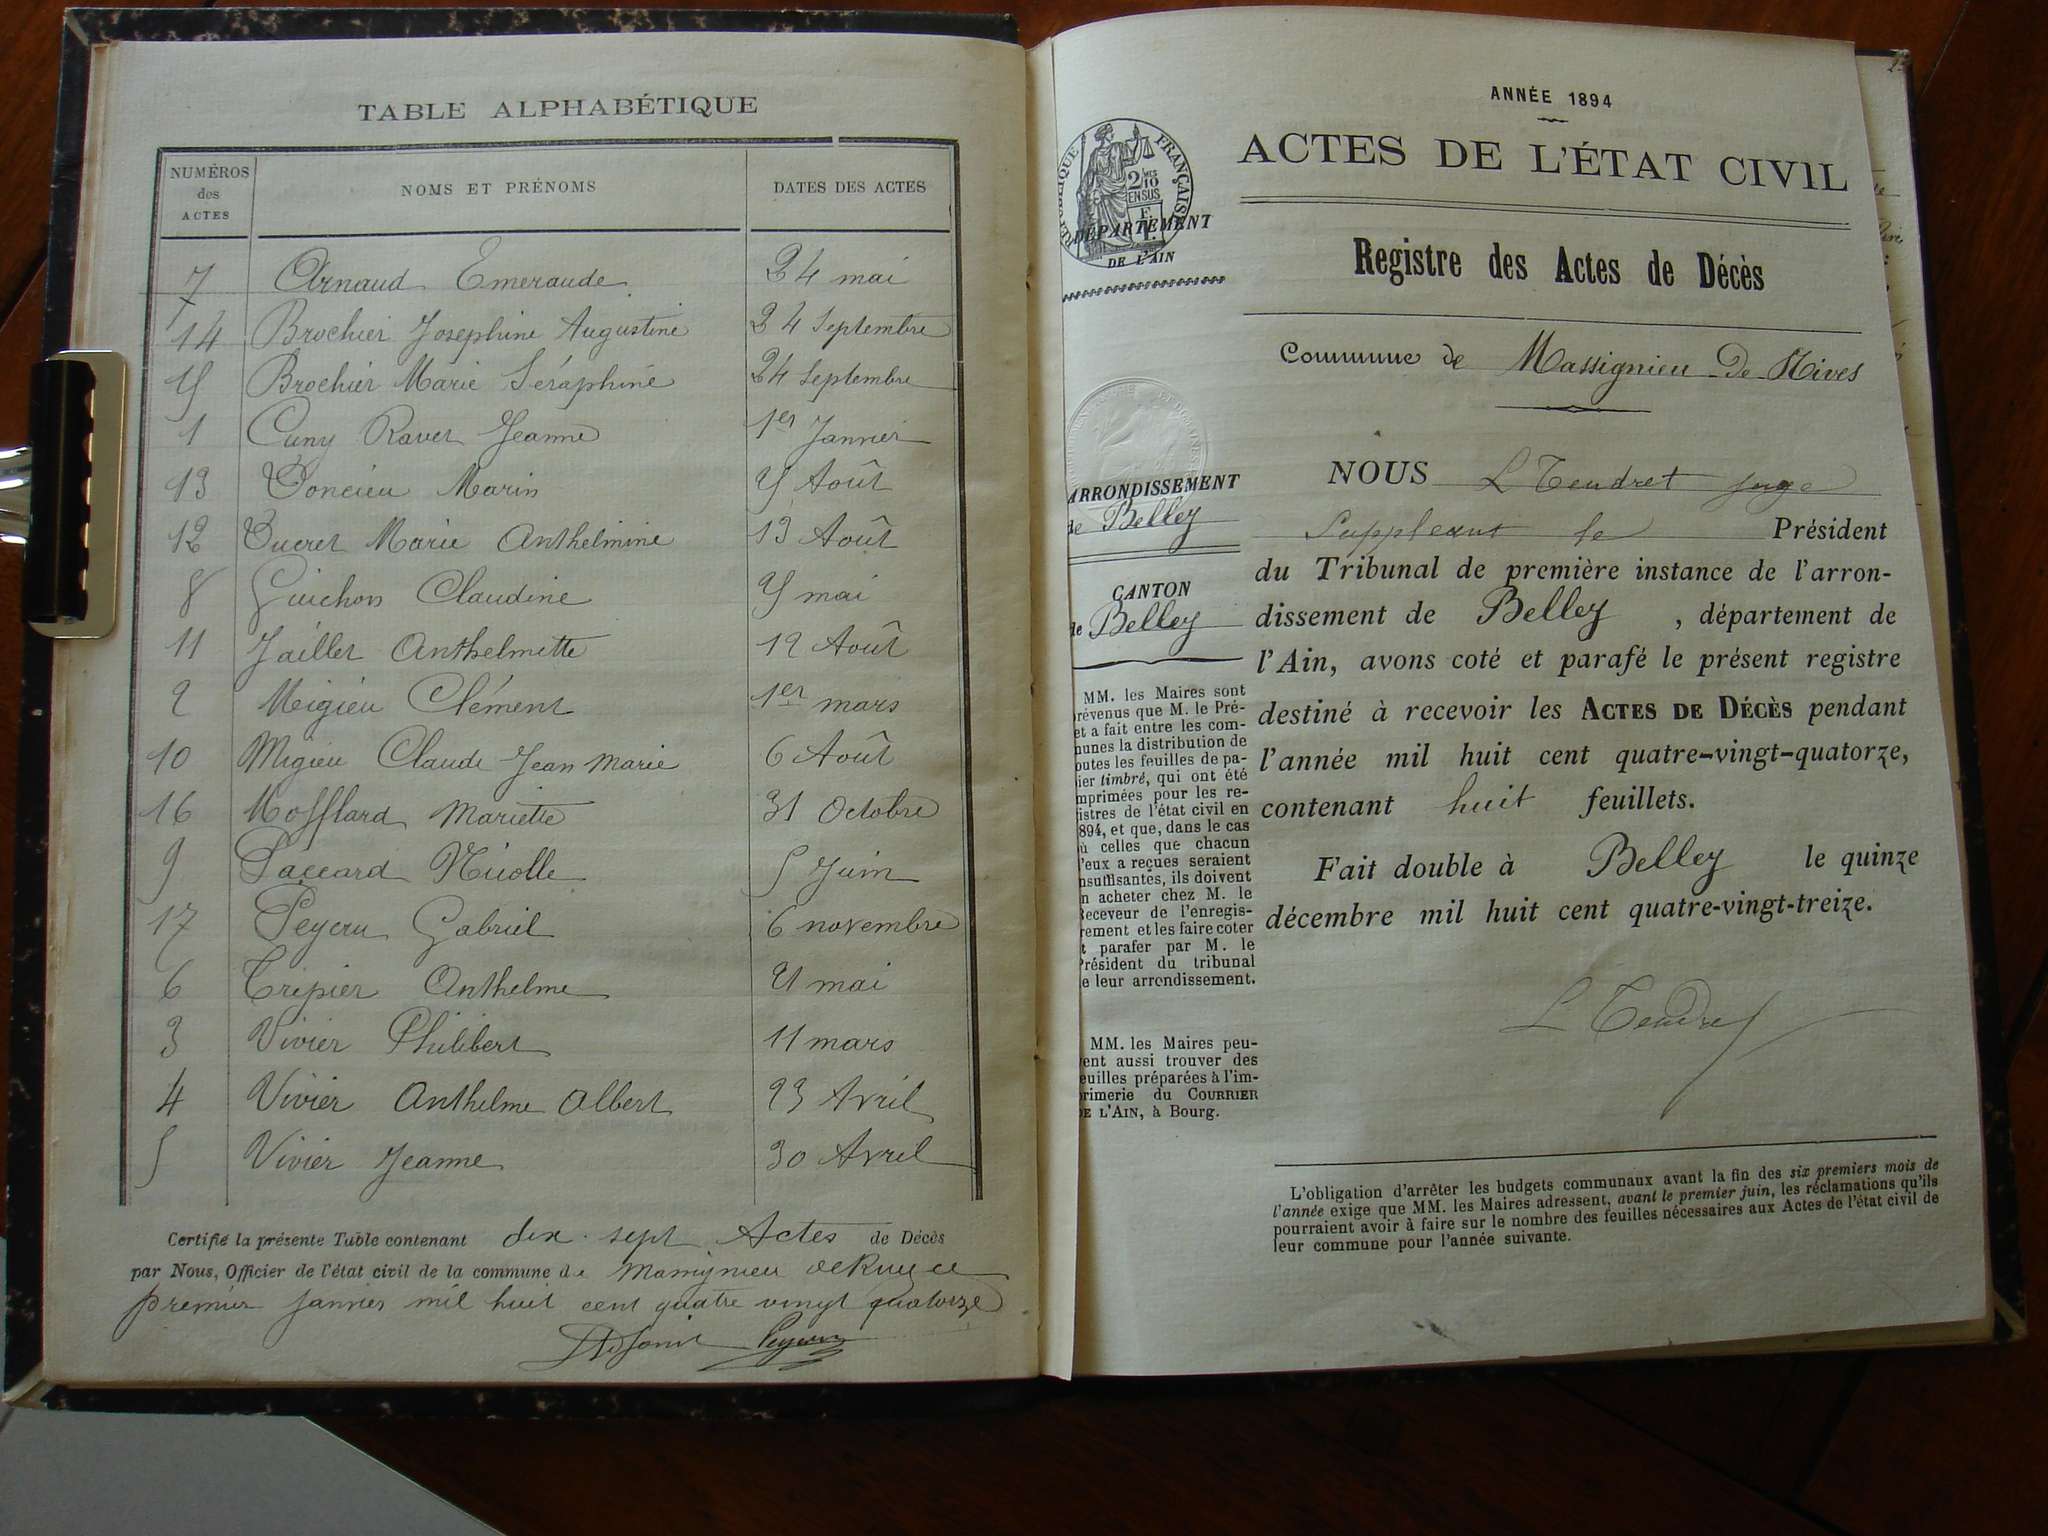 TABLE ALPHABÉTIQUE
NUMÉROS des ACTES
NOMS ET PRÉNOMS
DATES DES ACTES
7 Arnaud Emeraude 24 mai
14 Brochier Josephine Augustine 24 Septembre
15 Brochier Marie Séraphine 24 Septembre
1 Cuny Ravet Jeanne 1er Janvier
13 Doncieu Marin 25 Août
12 Ducret Marie Anthelmine 13 Août
8 Guichon Claudine 25 mai
11 Jaillet Anthelmette 12 Août
2 Migieu Clément 1er mars
10 Migieu Claude Jean Marie 6 Août
16 Mofflard Mariette 31 Octobre
9 Paccard Nicolle 5 Juin
17 Peycru Gabriel 6 novembre
6 Tripier Anthelme 21 mai
3 Vivier Philibert 11 mars
4 Vivier Anthelme Albert 23 Avril
5 Vivier Jeanne 30 Avril
Certifié la présente Table contenant dix-sept Actes de Décès
par Nous, Officier de l'état civil de la commune de Massignieu de Rives ce
premier janvier mil huit cent quatre vingt quatorze
Peycru
ANNÉE 1894
ACTES DE L'ÉTAT CIVIL
RÉPUBLIQUE FRANÇAISE
2/10 EN SUS
DÉPARTEMENT
DE L'AIN
Registre des Actes de Décès
Commune de Massignieu De Rives
ARRONDISSEMENT
de Belley
CANTON
de Belley
NOUS L Tendret juge
Suppléant le Président
du Tribunal de première instance de l'arron-
dissement de Belley, département de
l'Ain, avons coté et parafé le présent registre
destiné à recevoir les ACTES DE DÉCÈS pendant
l'année mil huit cent quatre-vingt-quatorze,
contenant huit feuillets.
Fait double à Belley le quinze
décembre mil huit cent quatre-vingt-treize.
L Tendret
MM. les Maires sont
révenus que M. le Pré-
et a fait entre les com-
munes la distribution de
outes les feuilles de pa-
ier timbré, qui ont été
mprimées pour les re-
istres de l'état civil en
894, et que, dans le cas
ù celles que chacun
'eux a reçues seraient
nsuffisantes, ils doivent
n acheter chez M. le
Receveur de l'enregis-
rement et les faire coter
t parafer par M. le
Président du tribunal
e leur arrondissement.
MM. les Maires peu-
vent aussi trouver des
euilles préparées à l'im-
primerie du COURRIER
DE L'AIN, à Bourg.
L'obligation d'arrêter les budgets communaux avant la fin des six premiers mois de
l'année exige que MM. les Maires adressent, avant le premier juin, les réclamations qu'ils
pourraient avoir à faire sur le nombre des feuilles nécessaires aux Actes de l'état civil de
leur commune pour l'année suivante.